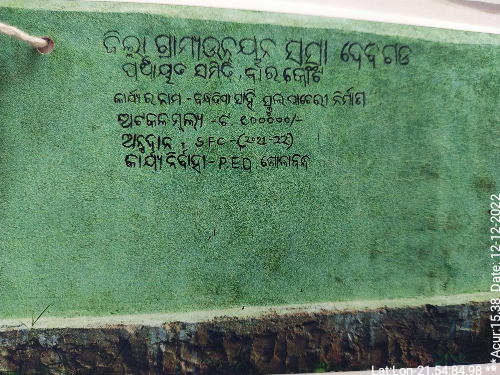 ଜିଲ୍ଲା ଗ୍ରାମ୍ୟଉନ୍ନୟନ ସଂସ୍ଥା ଦେବଗଡ
ପଞ୍ଚାୟତ ସମିତି, ବାରକୋଟ
କାର୍ଯ୍ୟର ନାମ - ସାହି ସ୍କୁଲ ପାଚେରୀ ନିର୍ମାଣ
ଅଟକଳ ମୂଲ୍ୟ - ଟ ୧୦୦୦୦୦/-
ଅନୁଦାନ, SFC - (୨୦୨୧-୨୨)
କାର୍ଯ୍ୟ ନିର୍ବାହୀ - P.E.O,
Lat:Lon-21.54:84.98
**Acur:15.38 Date: 12-12-2022